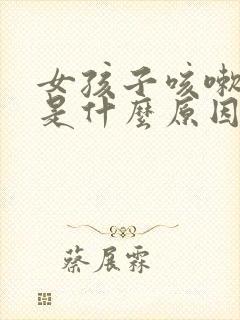 女孩子咳嗽
是什麼原因
蔡展霖